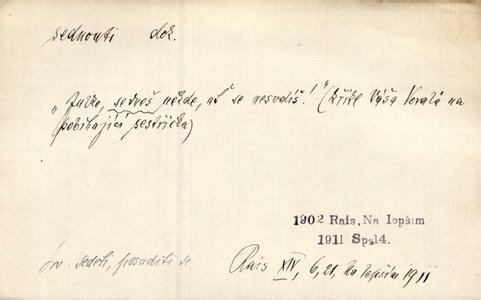 sednouti dok.
„Julko, sedneš někde, ať se nesvalíš!" (křikl Výša Voralů na
pobíhající sestřičku)
1902 Rais, Na lepším
1911 Sp.14.
sedeti, posaditi se
Rais XIV, 6, 21, Na lepším 1911